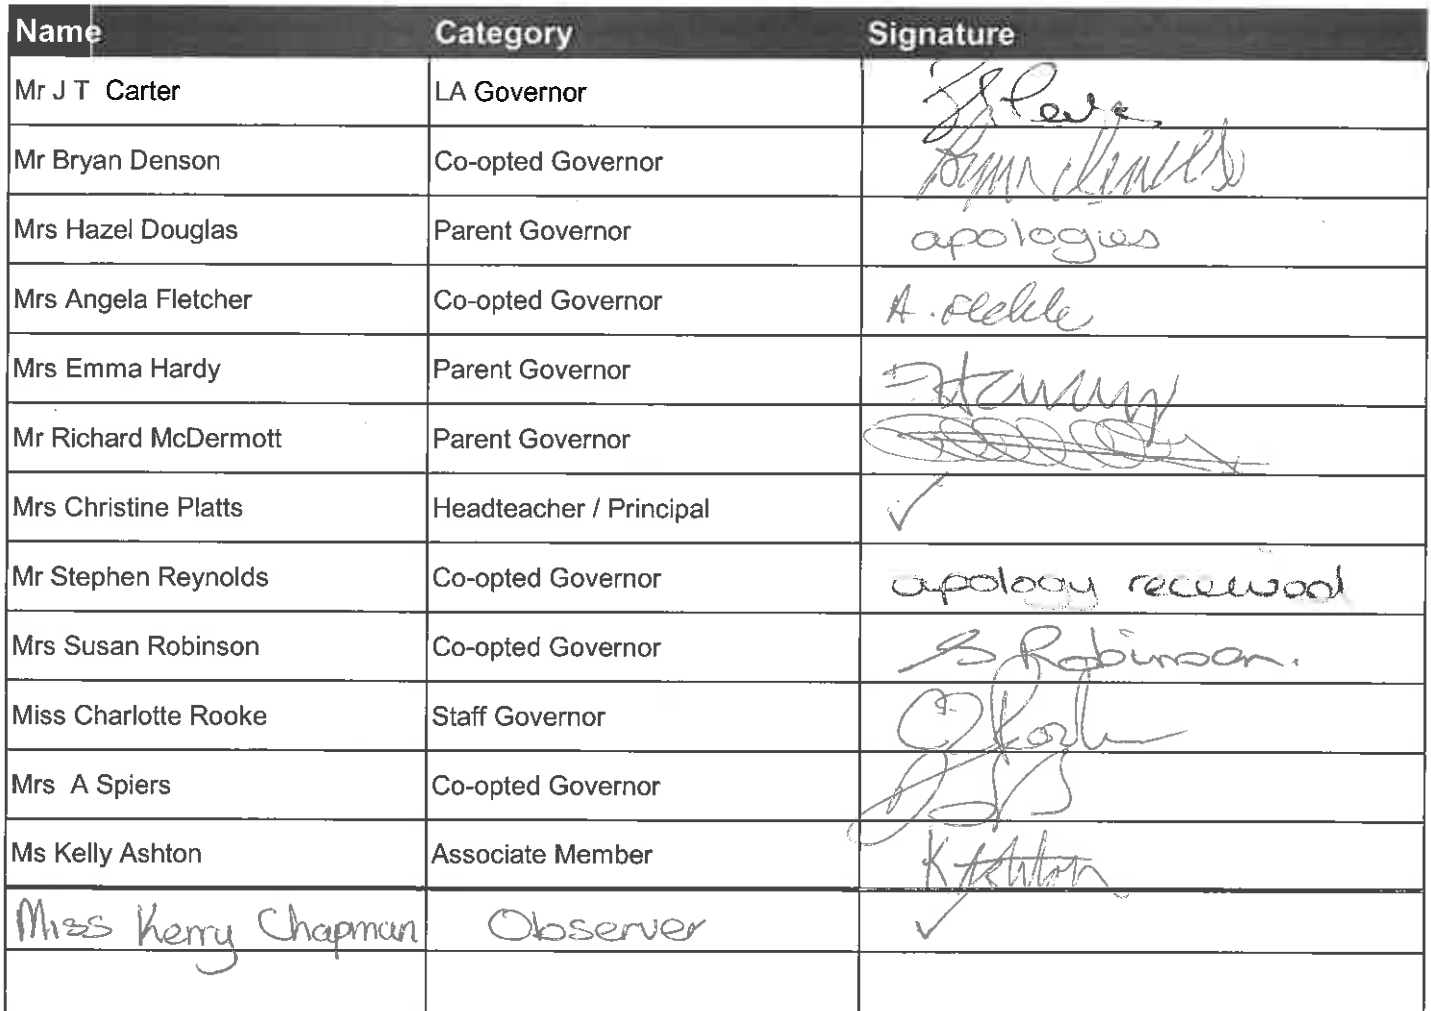 Name Category Signature
Mr J T Carter LA Governor
Mr Bryan Denson Co-opted Governor
Mrs Hazel Douglas Parent Governor apologies
Mrs Angela Fletcher Co-opted Governor A.
Mrs Emma Hardy Parent Governor
Mr Richard McDermott Parent Governor
Mrs Christine Platts Headteacher / Principal ✓
Mr Stephen Reynolds Co-opted Governor apology received
Mrs Susan Robinson Co-opted Governor S Robinson.
Miss Charlotte Rooke Staff Governor
Mrs A Spiers Co-opted Governor
Ms Kelly Ashton Associate Member K Ashton
Miss Kerry Chapman Observer ✓